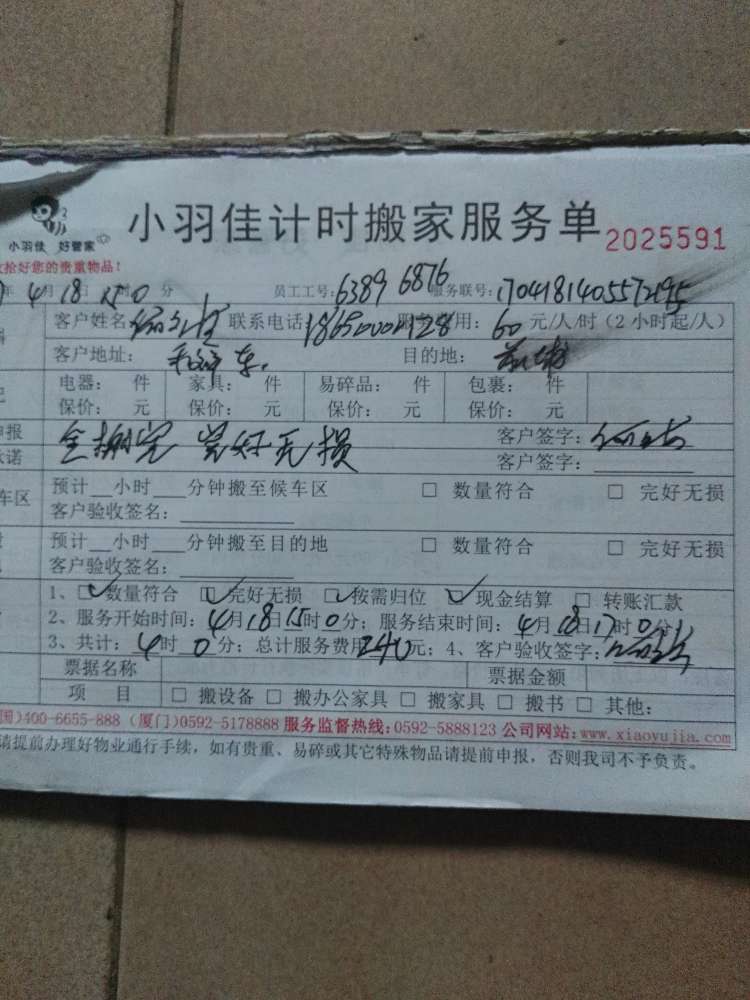 小羽佳计时搬家服务单 2025591
小羽佳 好管家
收拾好您的贵重物品！
年 4月18日15 0分 员工工号：6389 6876 服务联号：1704181405572195
客户姓名： 联系电话： 费用：60元/人/时（2小时起/人）
客户地址： 目的地：
电器： 件 家具： 件 易碎品： 件 包裹： 件
保价： 元 保价： 元 保价： 元 保价： 元
申报 全搬完 完好无损 客户签字：
承诺 客户签字：
预计__小时___分钟搬至候车区 □ 数量符合 □ 完好无损
候车区 客户验收签名：
预计__小时___分钟搬至目的地 □ 数量符合 □ 完好无损
客户验收签名：
1、☑数量符合 ☑完好无损 ☑按需归位 ☑现金结算 □ 转账汇款
2、服务开始时间：4月18日15时0分；服务结束时间：4月18日17时0分；
3、共计：4时0分；总计服务费用240元；4、客户验收签字：
票据名称 票据金额
项 目 □ 搬设备 □ 搬办公家具 □ 搬家具 □ 搬书 □ 其他：
国)400-6655-888 (厦门)0592-5178888 服务监督热线:0592-5888123 公司网站:www.xiaoyujia.com
请提前办理好物业通行手续，如有贵重、易碎或其它特殊物品请提前申报，否则我司不予负责。